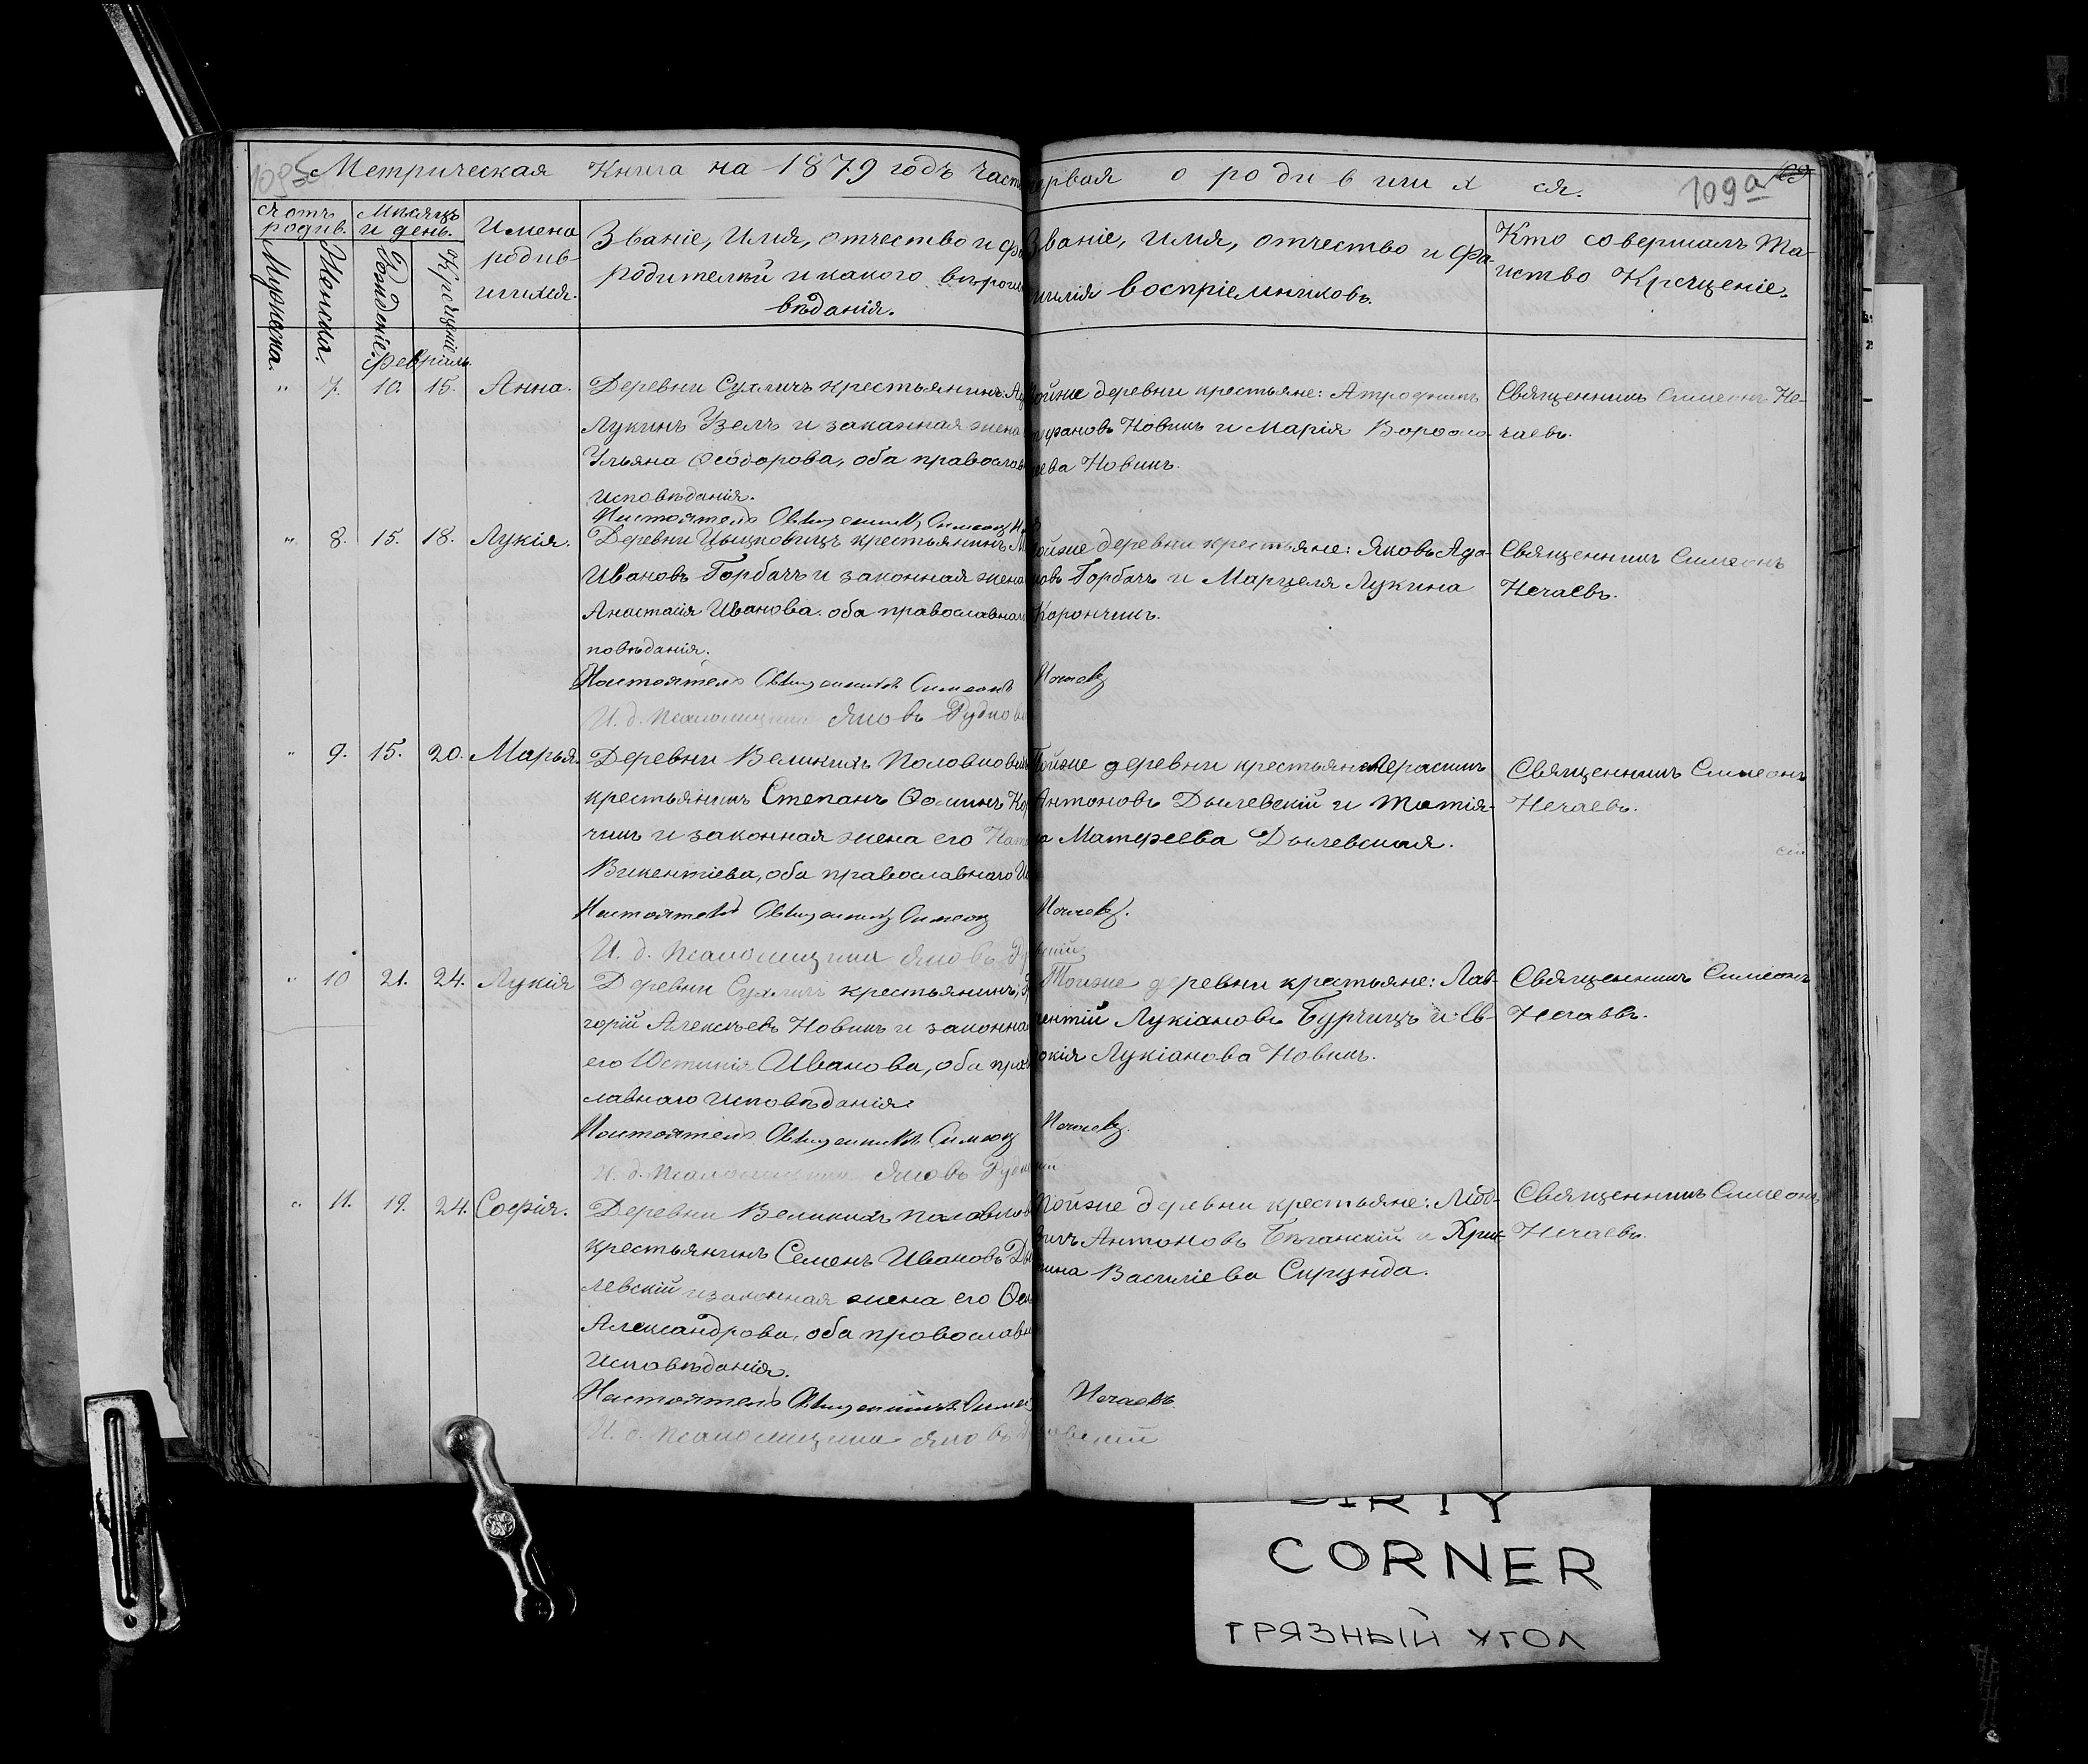 Метрическая Книга на 1879 годъ часть первая о родившихся.
109а
Счотъ родив.
Мѣсяцъ и день.
Мужеска.
Женска.
Рожденіе.
Крещеніе.
Имена
родив-
шихся.
Званіе, Имя, отчество и фа
родителей и какого вѣроис
вѣданія.
Званіе, имя, отчество и фа-
милія воспріемниковъ.
Кто совершалъ Та-
инство Крещеніе.
Февраль.
" 7. 10. 15. Анна.
Деревни Сухличъ крестьянинъ:
Лукинъ Узелъ и законная жена
Ульяна Ѳеодорова, оба православ
исповѣданія.
Настоятель Священникъ Симеонъ
тойже деревни крестьяне:
фановъ Новикъ и Марія
ева Новикъ.
Священникъ Симеонъ Не-
чаевъ.
" 8. 15. 18. Лукія.
Деревни Цыцковичъ крестьянинъ
Ивановъ Горбачъ и законная жена
Анастасія Иванова. оба православнаго
повѣданія.
Настоятель Священникъ Симеонъ Нечаевъ
И. д. псаломщика Яковъ Рудков
тойже деревни крестьяне: Яковъ Ада-
мовъ Горбачъ и Марцеля Лукина
Корончикъ.
Священникъ Симеонъ
Нечаевъ.
" 9. 15. 20. Марья.
Деревни Великихъ Половкович
крестьянинъ Степанъ Ѳоминъ Ко
чикъ и законная жена его Ната
Викентіева, оба православнаго И
Настоятель Священникъ Симеонъ Нечаевъ.
И. д. псаломщика Яковъ Ру вскій
Тойже деревни крестьяне: Герасимъ
Антоновъ Дылевскій и Татія-
на Матфеева Дылевская.
Священникъ Симеонъ
Нечаевъ.
" 10 21. 24. Лукія
Деревни Сухличъ крестьянинъ: Гри
горій Алексѣевъ Новикъ и законна
его Юстинія Иванова, оба право
славнаго исповѣданія.
Настоятель Священникъ Симеонъ Нечаевъ.
И. д. псаломщика Яковъ Рудк
Тойже деревни крестьяне: Лав-
рентій Лукіановъ Бурчицъ и Ев-
докія Лукіанова Новикъ.
Священникъ Симеонъ
Нечаевъ.
" 11. 19. 24. Софія.
Деревни Великихъ половков
крестьянинъ Семенъ Ивановъ Ды
левскій и законная жена его Ѳек
Александрова, оба православн
Исповѣданія.
Настоятель Священникъ Симео Нечаевъ.
И. д. псаломщика Яковъ овскій
тойже деревни крестьяне: Люд-
вигъ Антоновъ Бѣганскій и Хри-
стина Василіева Скрунда.
Священникъ Симеонъ
Нечаевъ.
DIRTY
CORNER
ГРЯЗНЫЙ УГОЛ